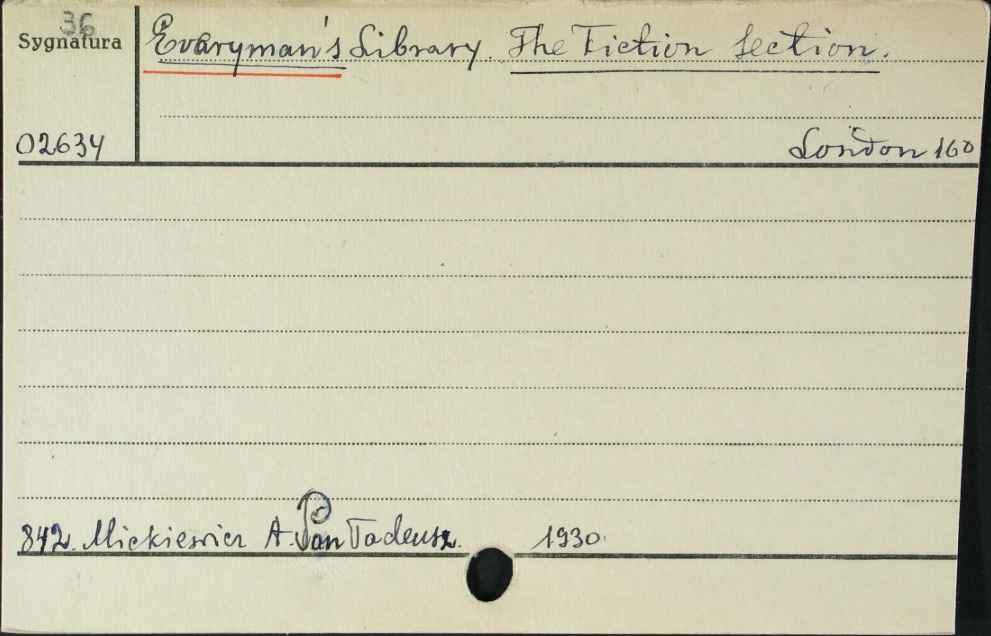 36
Sygnatura Everyman's Library. The Fiction section.
02634 London 160
842. Mickiewicz A. Pan Tadeusz. 1930.